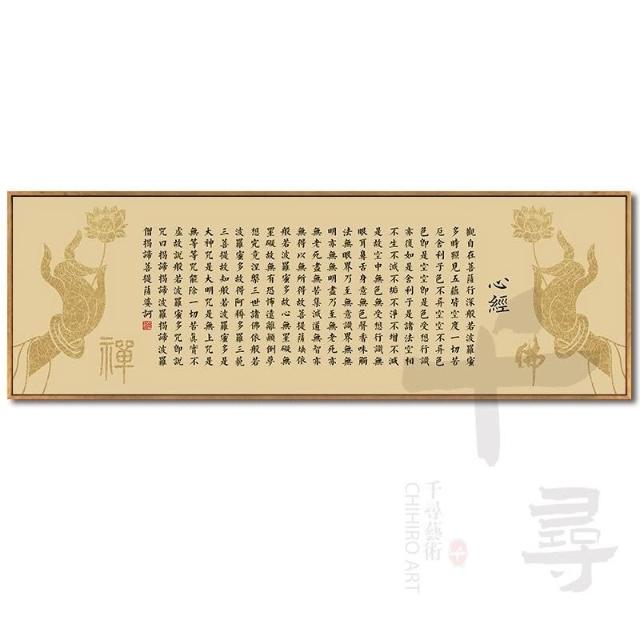 心經
觀自在菩薩行深般若波羅蜜
多時照見五蘊皆空度一切苦
厄舍利子色不異空空不異色
色即是空空即是色受想行識
亦復如是舍利子是諸法空相
不生不滅不垢不淨不增不減
是故空中無色無受想行識無
眼耳鼻舌身意無色聲香味觸
法無眼界乃至無意識界無無
明亦無無明盡乃至無老死亦
無老死盡無苦集滅道無智亦
無得以無所得故菩提薩埵依
般若波羅蜜多故心無罣礙無
罣礙故無有恐怖遠離顛倒夢
想究竟涅槃三世諸佛依般若
波羅蜜多故得阿耨多羅三藐
三菩提故知般若波羅蜜多是
大神咒是大明咒是無上咒是
無等等咒能除一切苦真實不
虛故說般若波羅蜜多咒即說
咒曰揭諦揭諦波羅揭諦波羅
僧揭諦菩提薩婆訶
佛
禪
千尋
千尋藝術
CHIHIRO ART